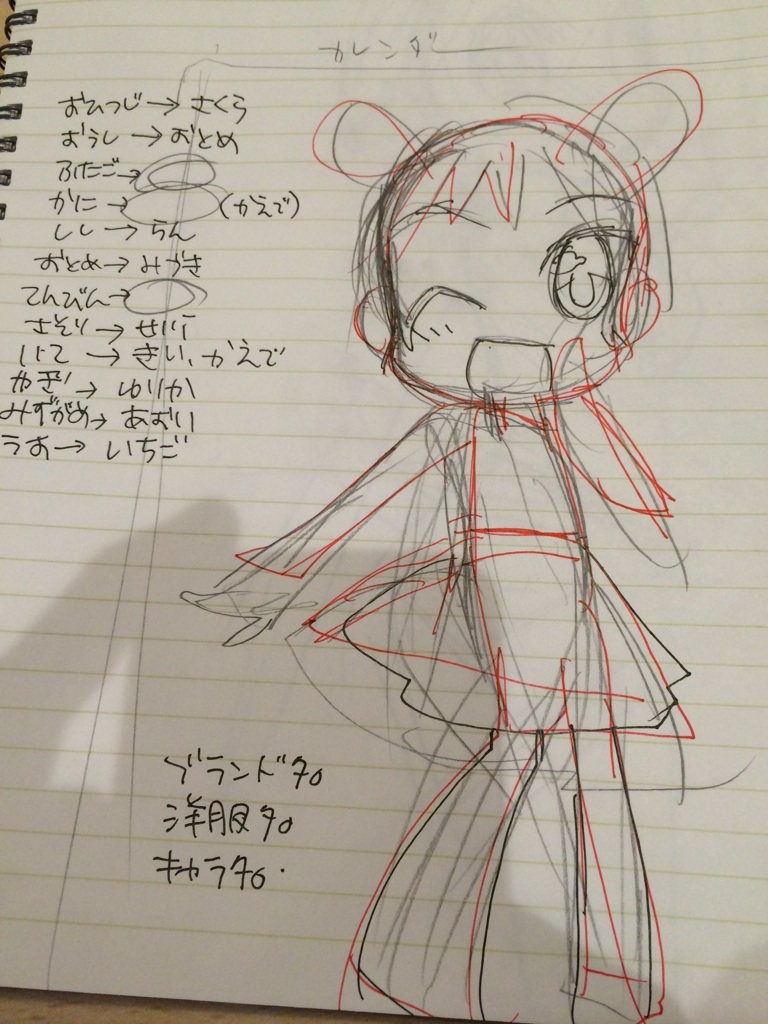 カレンダー
おひつじ→さくら
おうし→おとめ
ふたご→
かに→(かえで)
しし→らん
おとめ→みづき
てんびん→
さそり→せいら
いて→きい、かえで
やぎ→ゆりか
みずがめ→あおい
うお→いちご
ブランド名
洋服名
キャラ名.